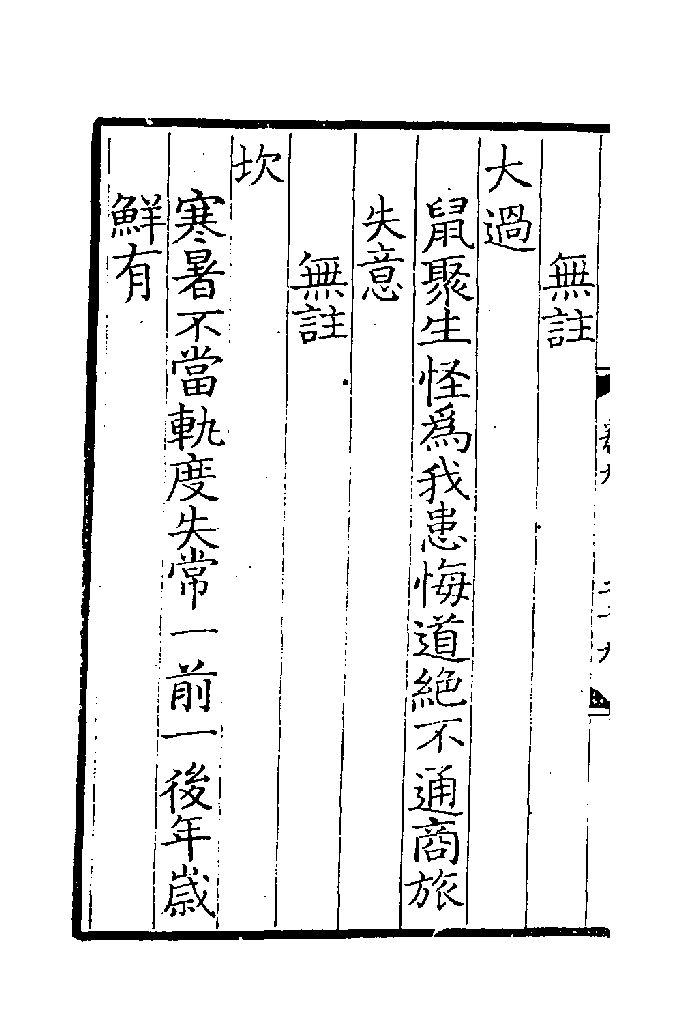 無註
大過
鼠聚生怪為我患悔道絕不通商旅
失意
無註
坎
寒暑不當軌度失常一前一後年歲
鮮有